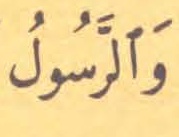 وَٱلرَّسُولُ